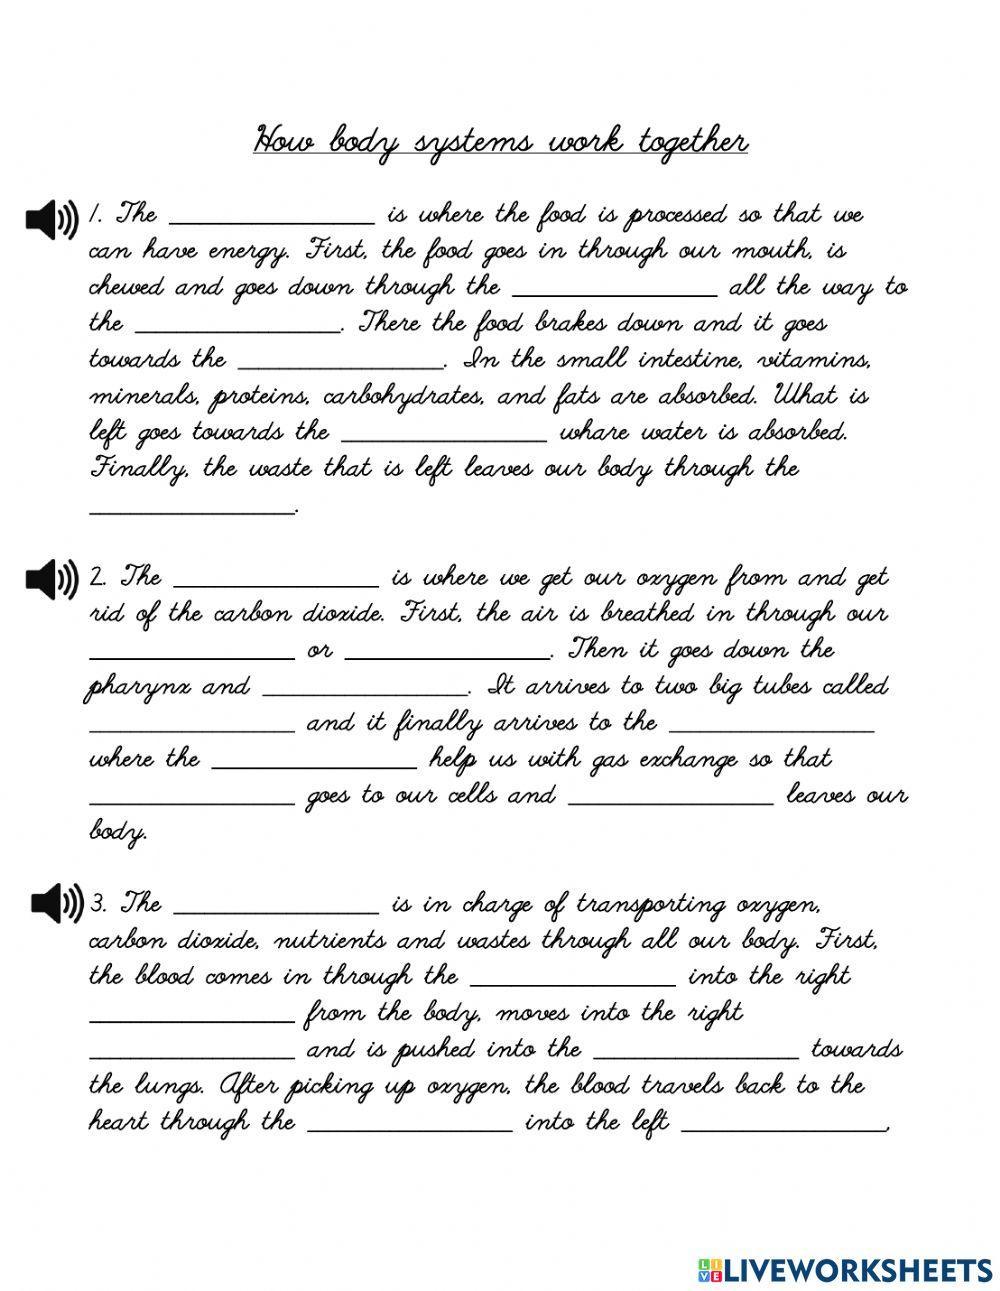 How body systems work together
1. The ____________________ is where the food is processed so that we
can have energy. First, the food goes in through our mouth, is
chewed and goes down through the ____________________ all the way to
the ____________________. There the food brakes down and it goes
towards the ____________________. In the small intestine, vitamins,
minerals, proteins, carbohydrates, and fats are absorbed. What is
left goes towards the ____________________ whare water is absorbed.
Finally, the waste that is left leaves our body through the
____________________.
2. The ____________________ is where we get our oxygen from and get
rid of the carbon dioxide. First, the air is breathed in through our
____________________ or ____________________. Then it goes down the
pharynx and ____________________. It arrives to two big tubes called
____________________ and it finally arrives to the ____________________
where the ____________________ help us with gas exchange so that
____________________ goes to our cells and ____________________ leaves our
body.
3. The ____________________ is in charge of transporting oxygen,
carbon dioxide, nutrients and wastes through all our body. First,
the blood comes in through the ____________________ into the right
____________________ from the body, moves into the right
____________________ and is pushed into the ____________________ towards
the lungs. After picking up oxygen, the blood travels back to the
heart through the ____________________ into the left ____________________,
LIVE LIVEWORKSHEETS